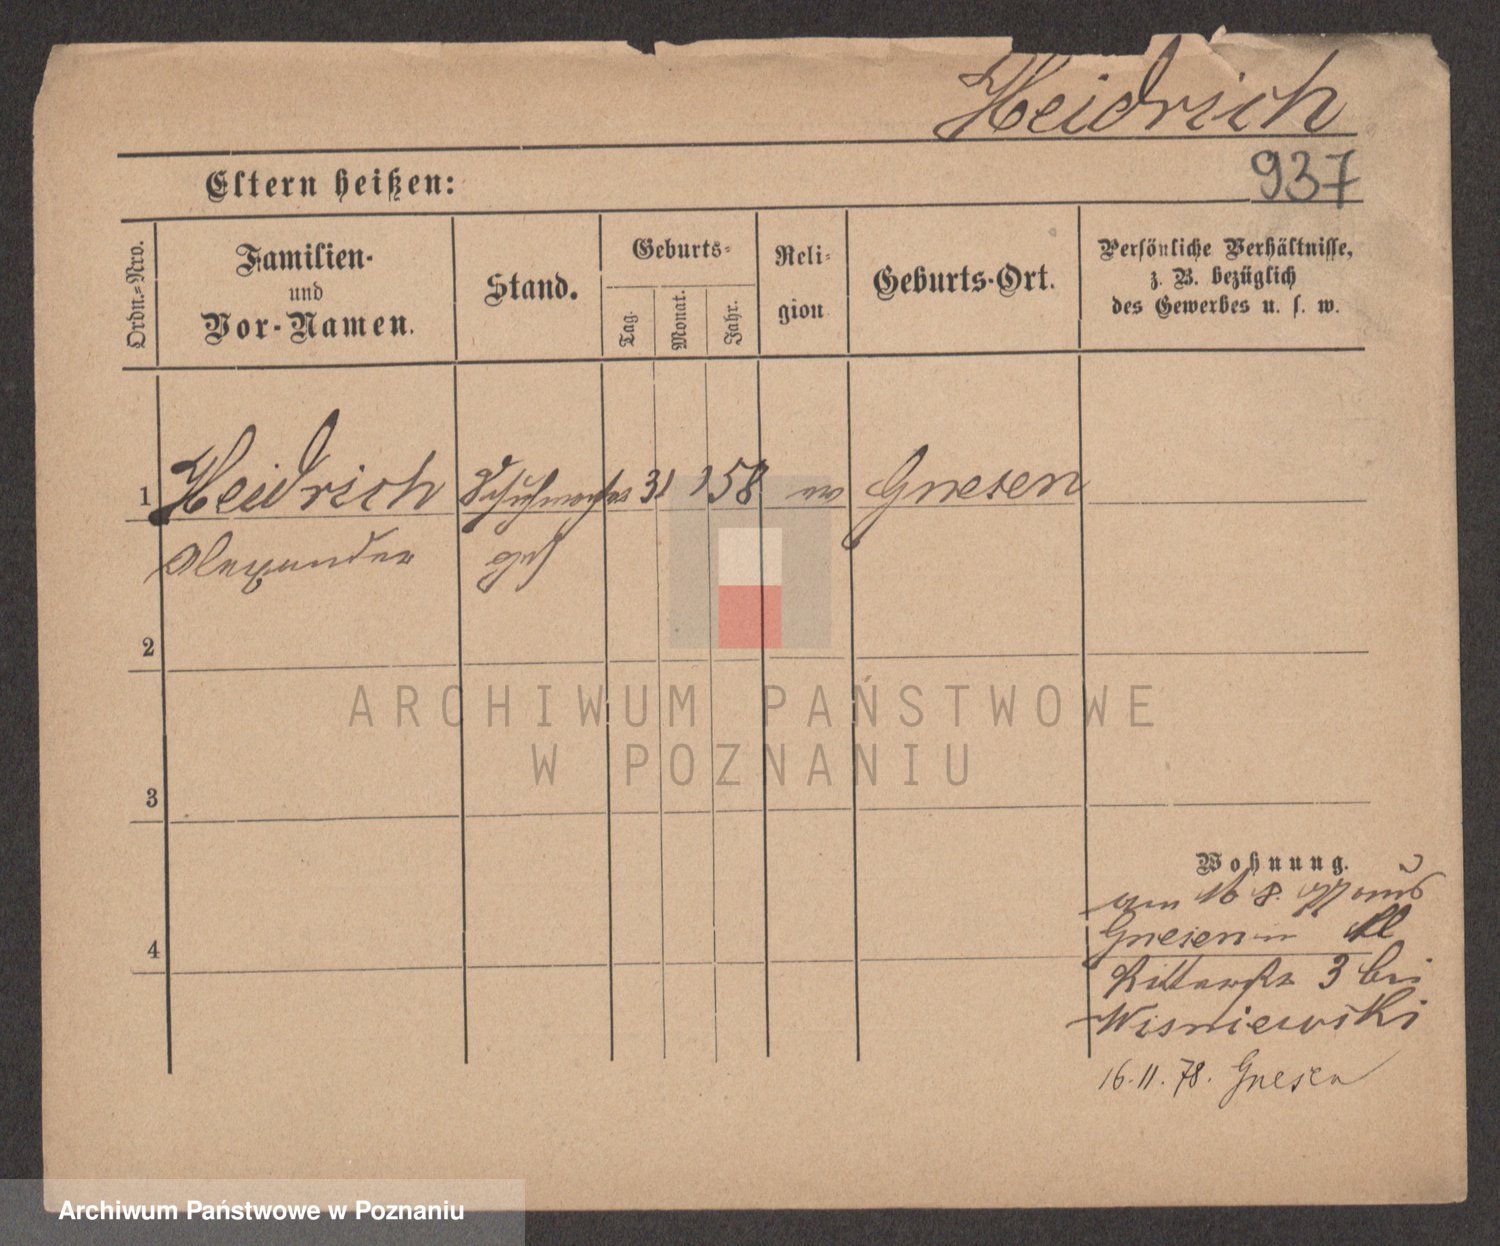 Heidrich
937
Eltern heißen:
Ordn.-Nro.
Familien-
und
Vor-Namen.
Stand.
Geburts-
Tag.
Monat.
Jahr.
Reli-
gion
Geburts-Ort.
Persönliche Verhältnisse,
z. B. bezüglich
des Gewerbes u. s. w.
1 Heidrich Schuhmacher 31 58 Gnesen
Alexander ges
2
ARCHIWUM PAŃSTWOWE
W POZNANIU
3
Wohnung.
am 16 8. 77 aus
4 Gnesen
Ritterstr 3 bei
Wisniewski
16.11.78. Gnesen
Archiwum Państwowe w Poznaniu